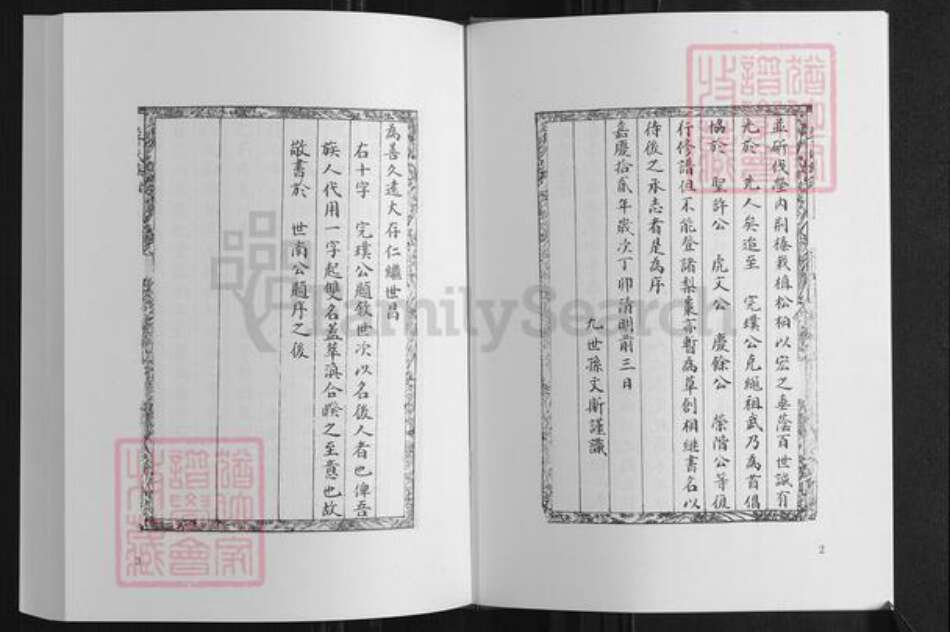 並斫伐塋內荊榛栽植松柏以宏之垂蔭百世誠有
光於 先人矣追至 完璞公克繩祖武乃為首倡
協於 聖許公 虎文公 慶餘公 榮階公等復
行修譜但不能登諸梨棗亦暫為草創相繼書名以
待後之承志者是為序
嘉慶拾貳年歲次丁卯清明前三日
九世孫文衡謹識
2
為善久遠大存仁繼世昌
右十字 完璞公題敘世次以名後人者也俾吾
族人代用一字起雙名蓋萃渙合睽之至意也故
敬書於 世南公題序之後
3
FamilySearch